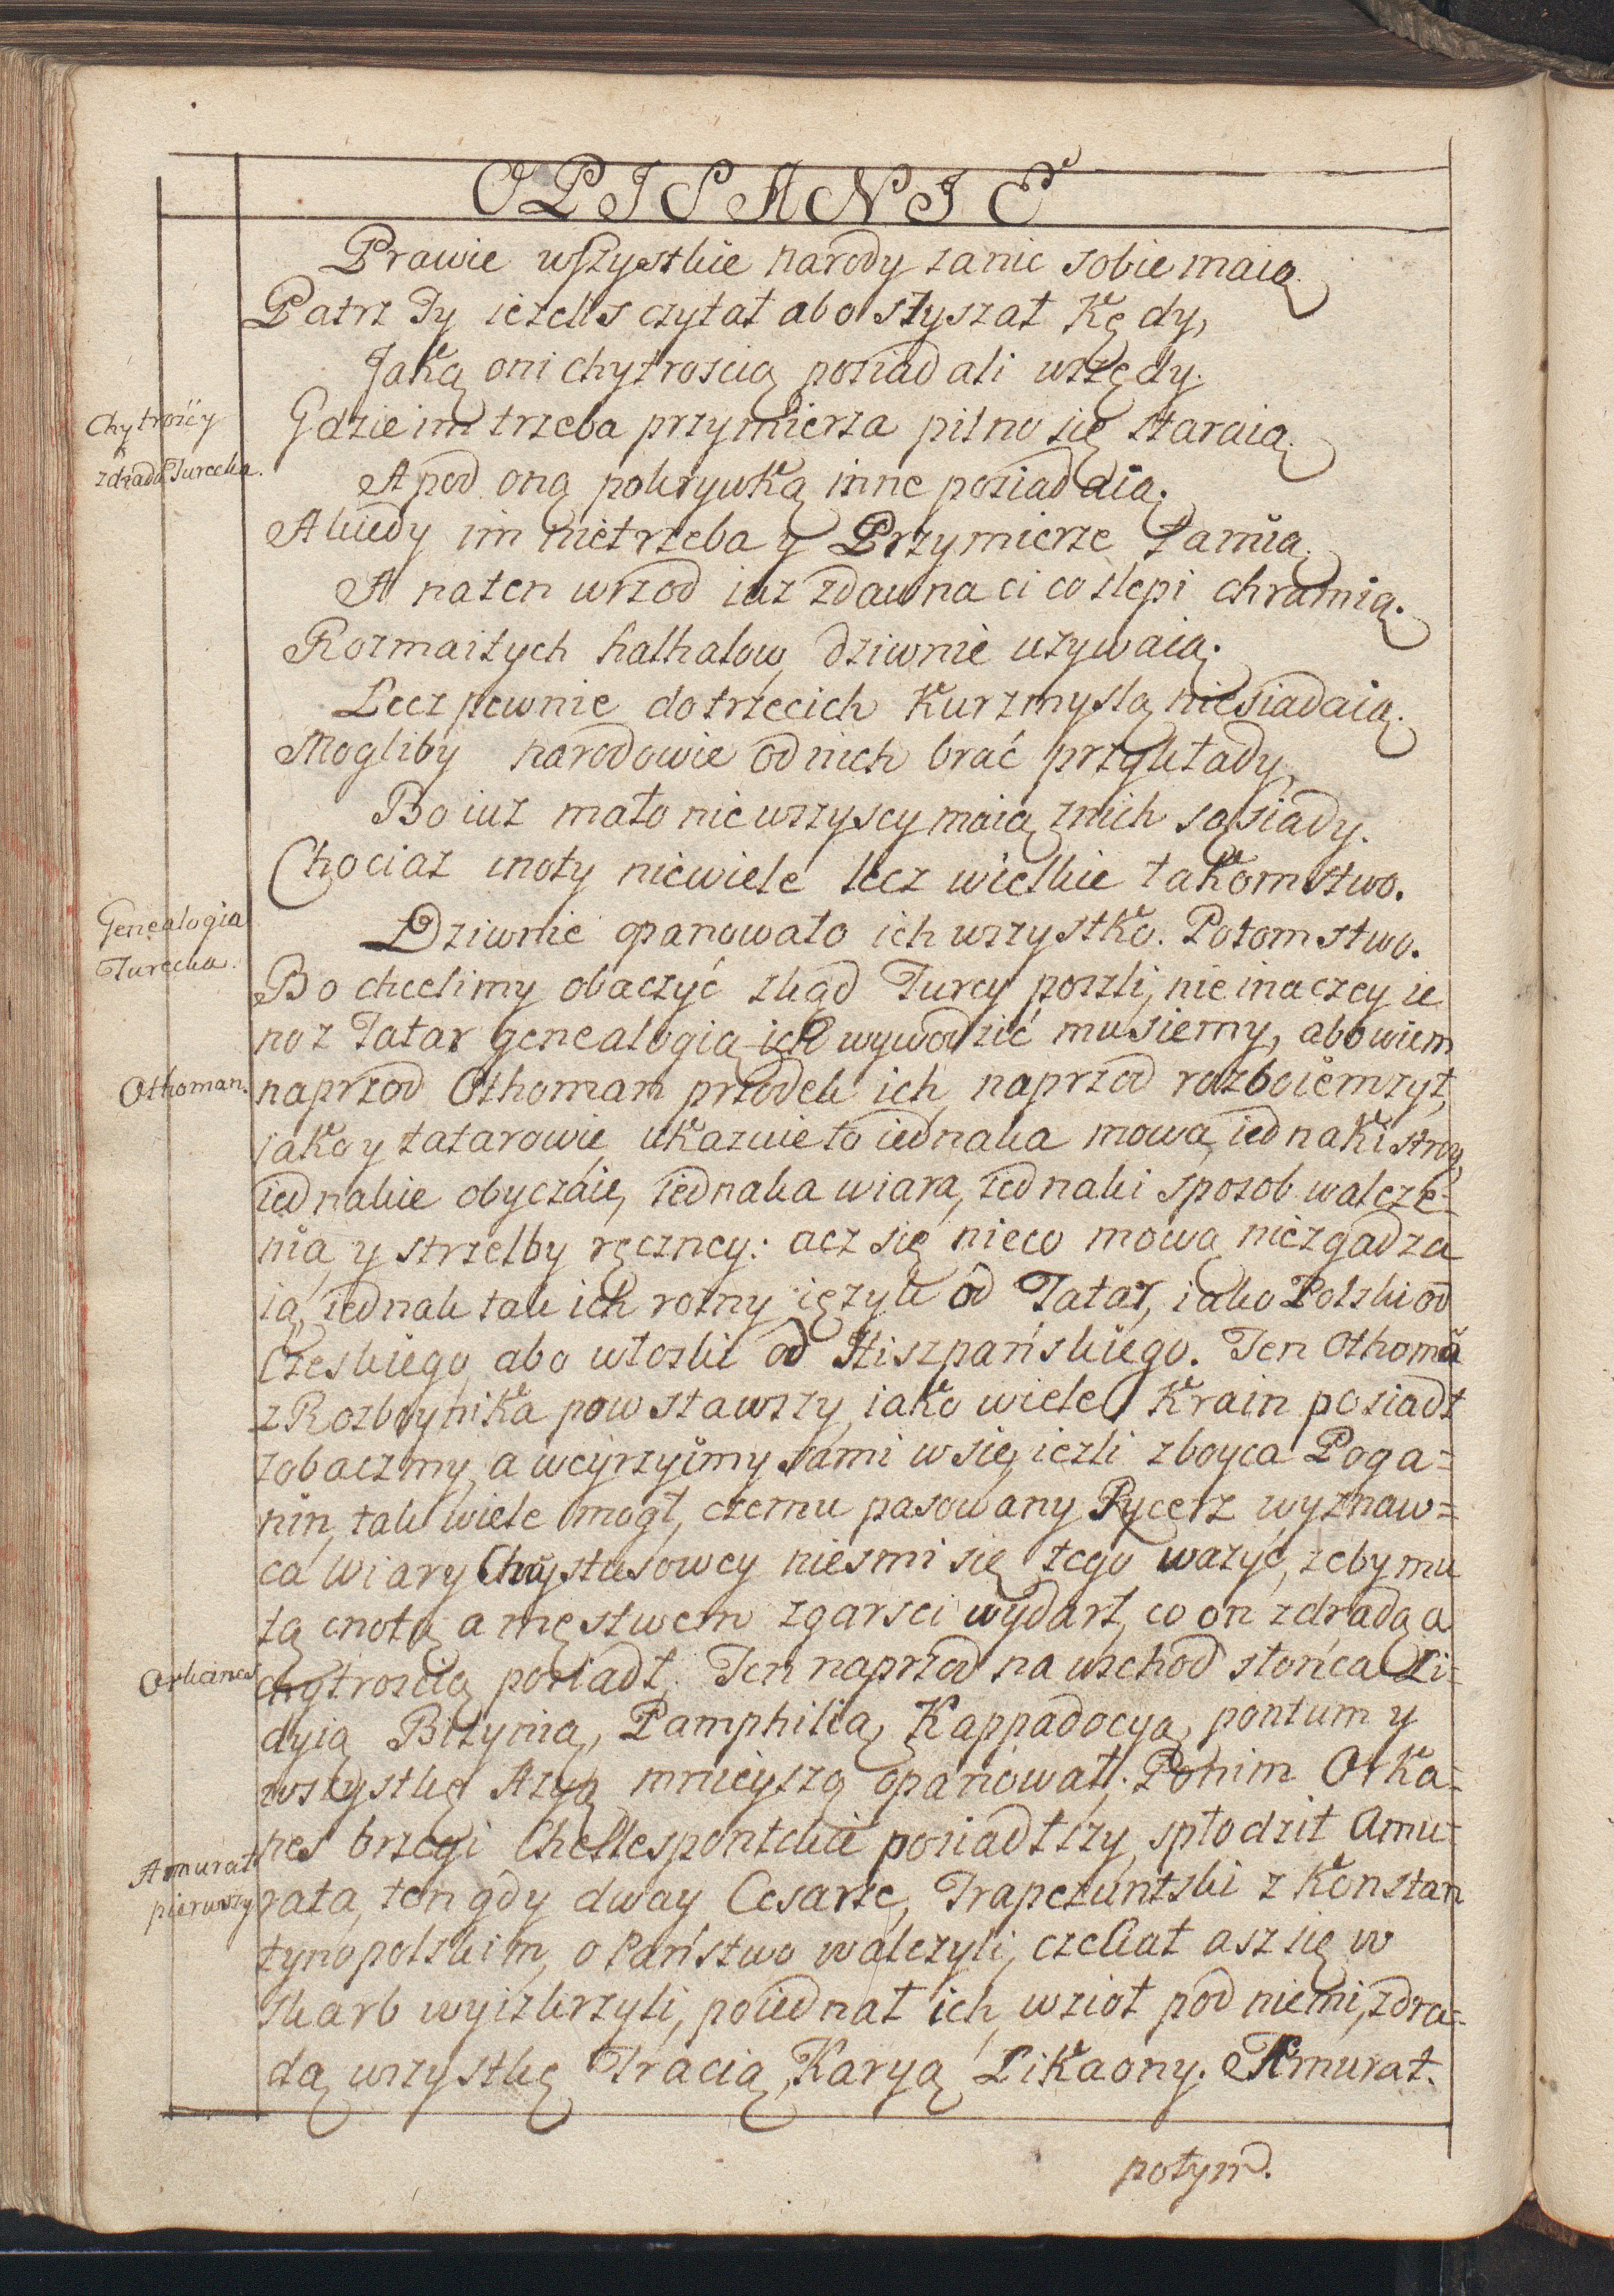 OPISANIE
Prawie wszystkie narody zanic sobie maią.
Patrz Ty iezelis czytał abo słyszał Kędy,
Jaką oni chytroscią posiadali wszędy.
Chytrość y
zdrada Turecka.
Gdzie im trzeba przymierza pilno się staraią.
A pod oną pokrywką inne posiadaią.
A kiedy im nietrzeba y Przymierze łamią.
A na ten wrzod iuz zdawna ci co slepi chramią.
Rozmaitych kalkałow dziwnie uzywaią.
Lecz pewnie do trzecich Kur z mysłą niesiadaią.
Mogliby narodowie od nich brać przykłady,
Bo iuz mało nie wszyscy maią z nich sąsiady.
Chociaz cnoty niewiele lecz wielkie łakomstwo.
Genealogia
Turecka.
Dziwnie opanowało ich wszystko. Potomstwo.
Bo chcelimy obaczyć zkąd Turcy poszli, nie inaczey ie
no z Tatar genealogią ich wywodzić musiemy, abowiem
Othoman.
naprzod Othoman przodek ich naprzod rozboiem zył,
jako y tatarowie ukazuie to iednaka mowa, iednaki stroy,
iednakie obyczaie, iednaka wiara, iednaki sposob walcze-
nia y strzelby ręczney: acz się nieco mową niezgadza
ią, iednak tak ich rozny ięzyk od Tatar, iako Polski od
Czeskiego, abo włoski od Hiszpańskiego. Ten Othomã
z Rozboynika powstawszy, iako wiele Krain posiadł
zobaczmy, a weyrzyimy sami w się, iezli zboyca Poga=
nin, tak wiele mogł, czemu pasowany Rycerz wyznaw=
ca Wiary Chrystusowey niesmi się tego wazyć, zeby mu
tą cnotą a męstwem z garsci wydarł, co on zdradą a
Orkanes
chytroscią posiadł. Ten naprzod na wschod słońca Li=
dyią Bitynią, Pamphilią, Kappadocyą, pontum y
wszystkę Azyą mnieyszą opanował. Po nim Orka=
nes brzegi Chellespontckie posiadłszy, spłodził Amu=
Amurat
pierwszy
rata, ten gdy dway Cesarze, Trapezuntski z Konstan
tynopolskim, o Państwo walczyli, czekał asz się w
skarb wyiskrzyli, poiednał ich, wzioł pod niemi, zdra=
dą wszystkę Tracią, Karyą Likaony. Amurat.
potym.